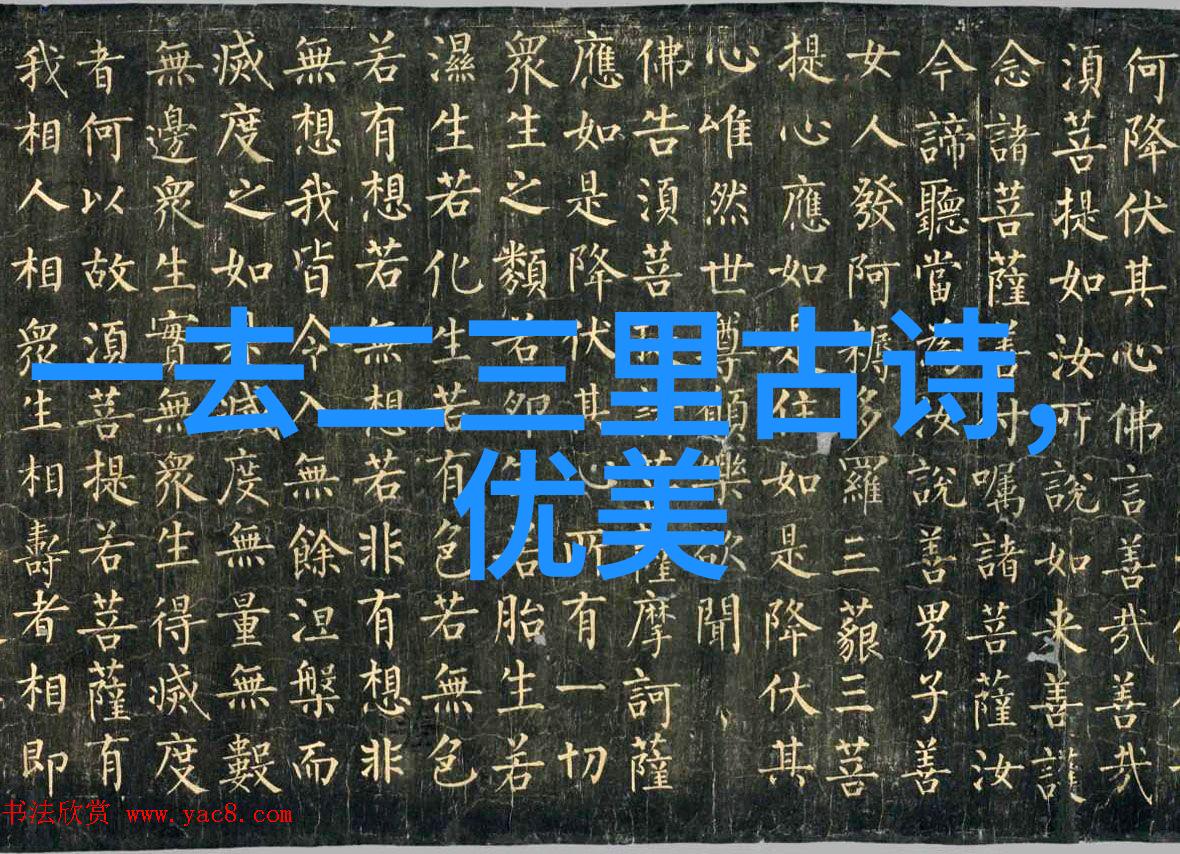 一去二三里古诗，
优美
何降伏其心佛言善哉善哉
湏菩提如汝所說如来善護
念諸菩薩善付嘱諸菩薩汝
今諦聽當為汝說善男子善
女人發阿耨多羅三藐三菩
提心應如是住如是降伏其
心唯然世尊願樂欲聞
佛告湏菩提諸菩薩摩訶薩
應如是降伏其心所有一切
衆生之類若卵生若胎生若
濕生若化生若有色若無色
若有想若無想若非有想非
無想我皆令入無餘涅槃而
滅度之如是滅度無量無數
無邊衆生實無衆生得滅度
者何以故湏菩提若菩薩有
我相人相衆生相壽者相即
书法欣赏 www.yac8.com